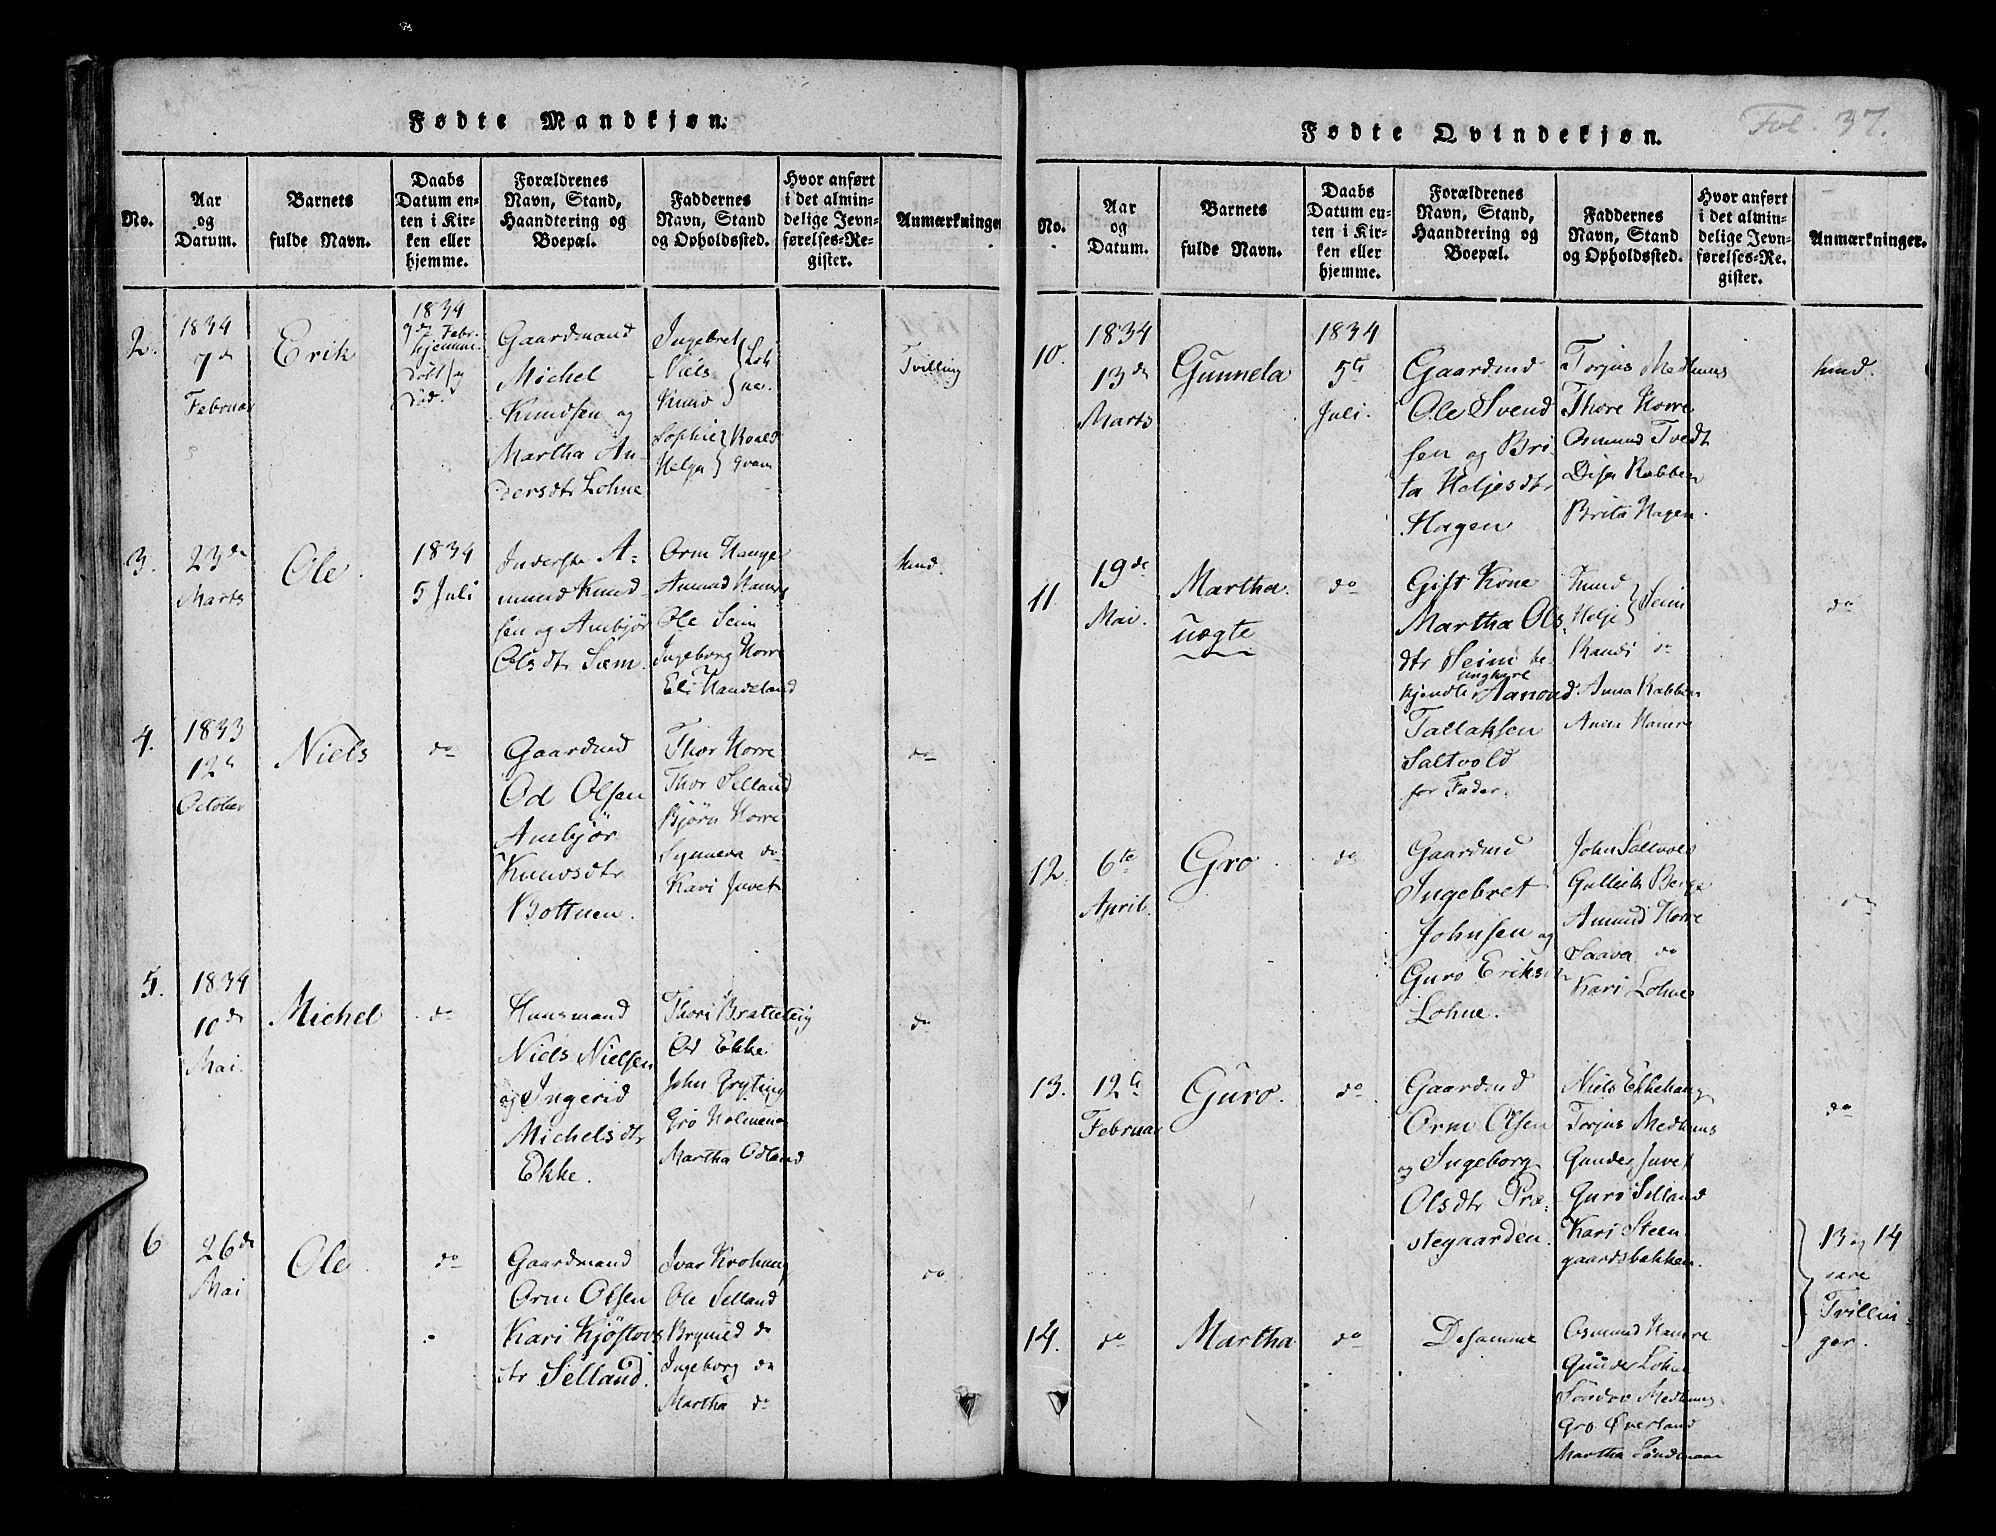 Fødte Mandkjøn.
No.
Aar
og
Datum.
Barnets
fulde Navn.
Daabs
Datum en-
ten i Kir-
ken eller
hjemme.
Forældrenes
Navn, Stand,
Haandtering og
Boepæl.
Faddernes
Navn, Stand
og Opholdssted.
Hvor anført
i det almin-
delige Jevn-
førelses-Re-
gister.
Anmærkninger
2.
1834
7de
Februar
Erik
1834
9de Febr.
hjemme-
døbt og
død.
Gaardmand
Michel
Knudsen og
Martha An-
dersdtr Lohne
Ingebret
Niels
Knud
Lohne
Sophie
Helga
Roald
Qvam
Tvilling
3.
23de
Marts
Ole
1834
5 Juli
Inderste A-
mund Knud
sen og Ambjør
Olsdtr Sæm.
Orm Hauge
Amund Hamre
Ole Seim
Ingeborg Horre
Eli Handeland
hmd.
4.
1833
12te
October
Niels
do
Gaardmd
Od Olsen
Ambjør
Knudsdtr
Bottnen.
Thor Horre
Thor Selland
Bjørn Horre
Synneva do
Kari Juvet
do
5.
1834
10de
Mai.
Michel
do
Huusmand
Niels Nielsen
og Ingerid
Michelsdtr
Ekke.
Thori Bratteteig
Od Ekke
John Tryting
Gro Holmene
Martha Odland
do
6
26de
Mai
Ole
do
Gaardmand
Orm Olsen
Kari Kjøstovs
dtr Selland.
Ivar Krohaug
Ole Selland
Brynild do
Ingeborg do
Martha do
do
Fødte Qvindekjøn.
Fol. 37.
No.
Aar
og
Datum.
Barnets
fulde Navn.
Daabs
Datum en-
ten i Kir-
ken eller
hjemme.
Forældrenes
Navn, Stand,
Haandtering og
Boepæl.
Faddernes
Navn, Stand
og Opholdssted.
Hvor anført
i det almin-
delige Jevn-
førelses-Re-
gister.
Anmærkninger.
10.
1834
13de
Marts
Gunnela
1834
5te
Juli.
Gaardmd
Ole Svend
sen og Bri-
ta Heljesdtr
Hagen
Torjus Medhuus
Thore Horre
Osmund Tvedt
Disa Rabben
Brita Hagen.
hmd.
11
19de
Mai.
Martha
uægte
do
Gift Kone
Martha Ols
dtr Seim be-
kjendte ungkarl Aanond
Tallaksen
Saltvold
for Fader.
Knud
Helje
Seim
Randi do
Anna Rabben
Anna Hamre
do
12.
6te
April.
Gro.
do
Gaardmd
Ingebret
Johnsen og
Guro Eriksdtr
Lohne.
John Saltvold
Gullik Berge
Amund Horre
Saava do
Kari Lohne
do
13.
12te
Februar
Guro.
do
Gaardmd
Orm Olsen
og Ingeborg
Olsdtr Præ-
stegaarden.
Niels Ekkehaug
Torjus Medhuus
Gunder Juvet
Guro Selland
Kari Steen
gaardsbakken.
do
13 og 14
vare
Tvillin-
ger.
14.
do
Martha
do
Desamme
Osmund Hamre
Gunder Lohne
Sondov Medhuus
Gro Øverland
Martha Søndenaa